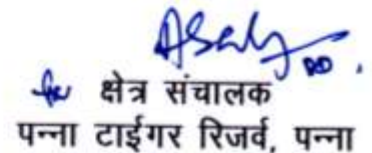 for क्षेत्र संचालक
पन्ना टाईगर रिजर्व, पन्ना